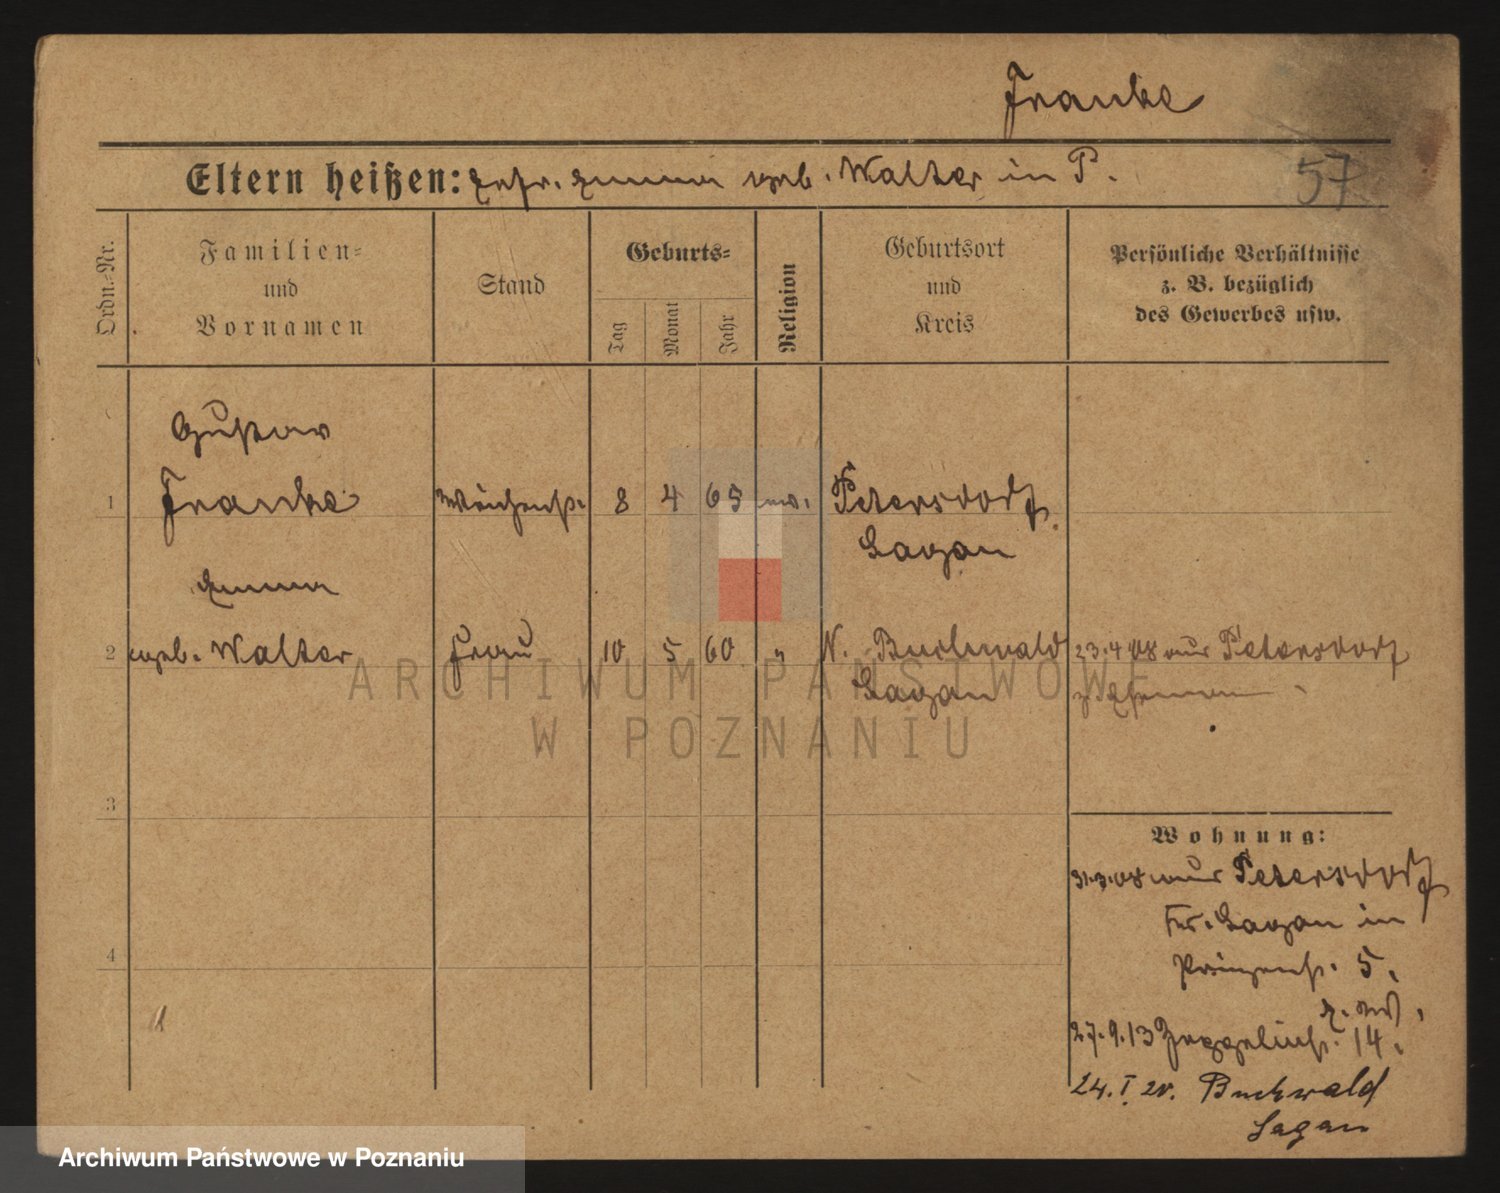 Franke
Eltern heißen: Ehefr. Emma geb. Walter in P.
57
Ordn.-Nr.
Familien-
und
Vornamen
Stand
Geburts-
Tag
Monat
Jahr
Religion
Geburtsort
und
Kreis
Persönliche Verhältnisse
z. B. bezüglich
des Gewerbes usw.
Gustav
1 Franke Weichenst. 8 4 65 ev. Petersdorf
Sagan
Emma
2 geb. Walter Frau 10 5 60 " N. Buchwald 23.4.08 aus Petersdorf
Sagan z. Ehemann
3
Wohnung:
31.3.08 aus Petersdorf
Kr. Sagan in
4
Prinzenst. 5.
27.9.13 Zeppelinst. 14.
24.I.20. Buchwald
Sagan
ARCHIWUM PAŃSTWOWE
W POZNANIU
Archiwum Państwowe w Poznaniu